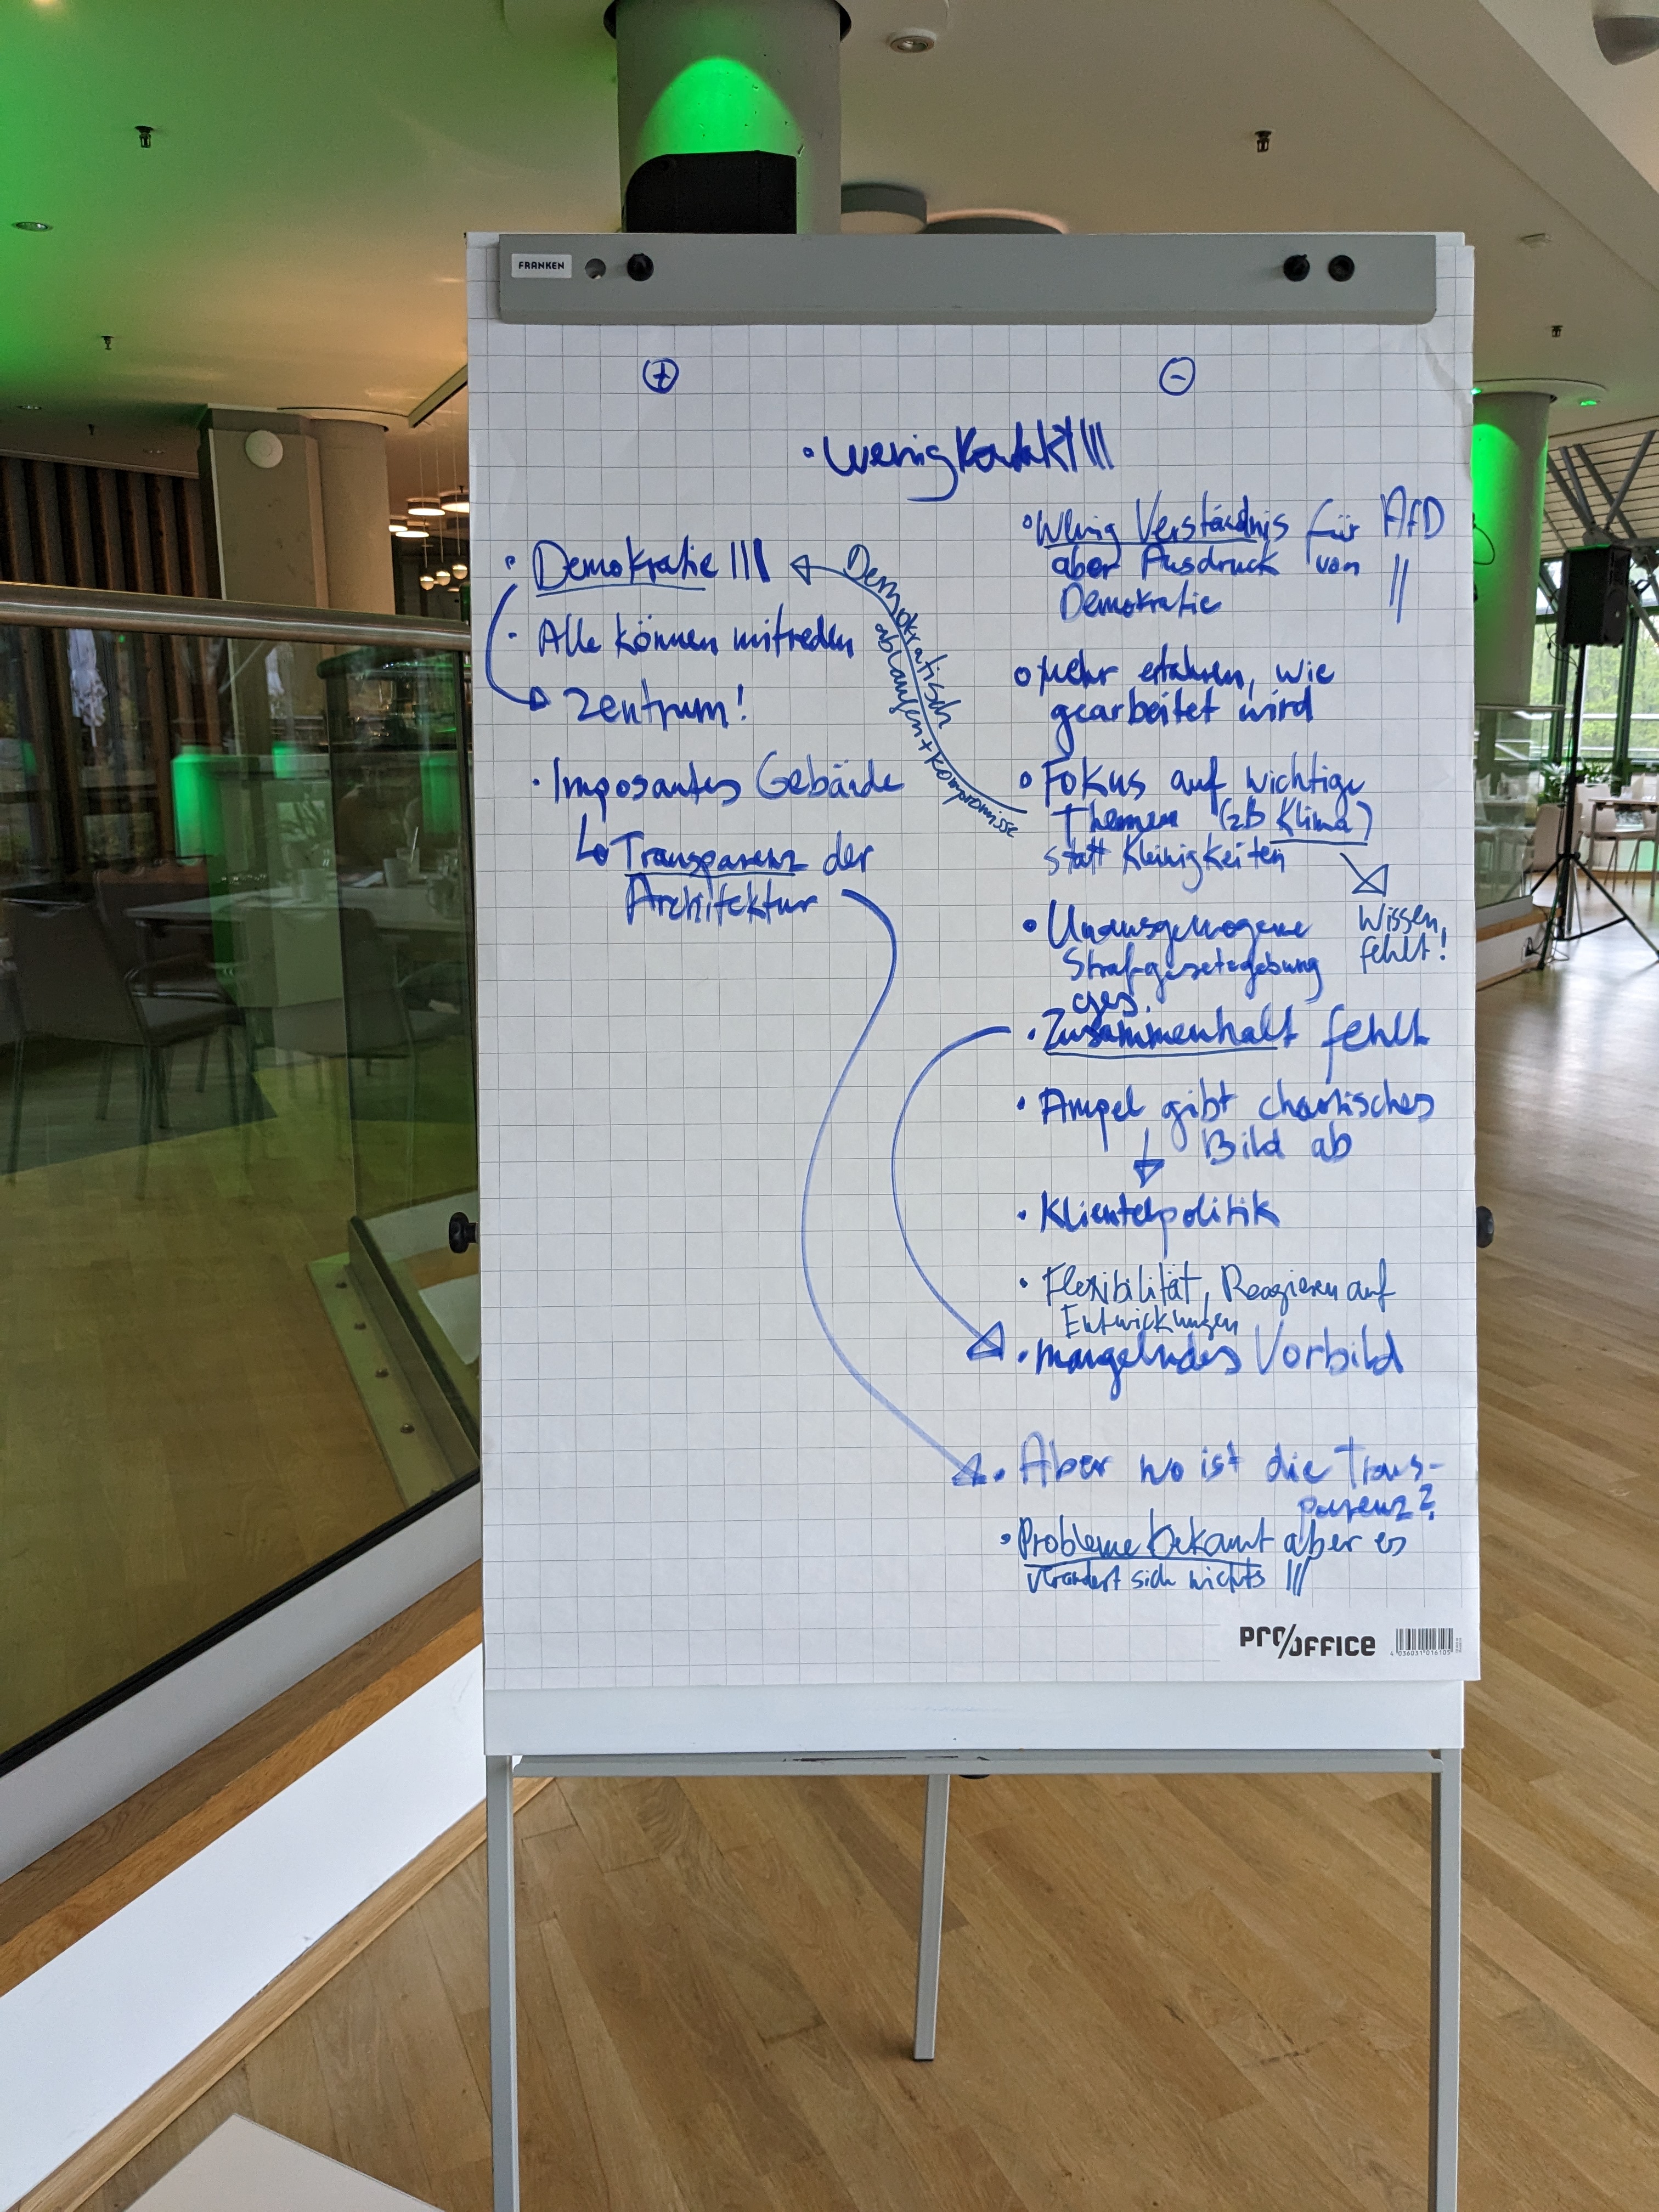 FRANKEN
+
-
• wenig Kontakt |||
• Demokratie |||
• Alle können mitreden
Zentrum!
• Imposantes Gebäude
Transparenz der
Architektur
Demokratisch
abhängen + Kompromisse
• Wenig Verständnis für AfD
aber Ausdruck von ||
Demokratie
• Mehr erfahren, wie
gearbeitet wird
• Fokus auf wichtige
Themen (zB Klima)
statt Kleinigkeiten
Wissen
fehlt!
• Unausgewogene
Strafgesetzgebung
ges.
• Zusammenhalt fehlt
• Ampel gibt chaotisches
Bild ab
• Klientelpolitik
• Flexibilität, Reagieren auf
Entwicklungen
• mangelndes Vorbild
• Aber wo ist die Trans-
parenz?
• Probleme bekannt aber es
verändert sich nichts |||
PRO/OFFICE
4 036031 016105